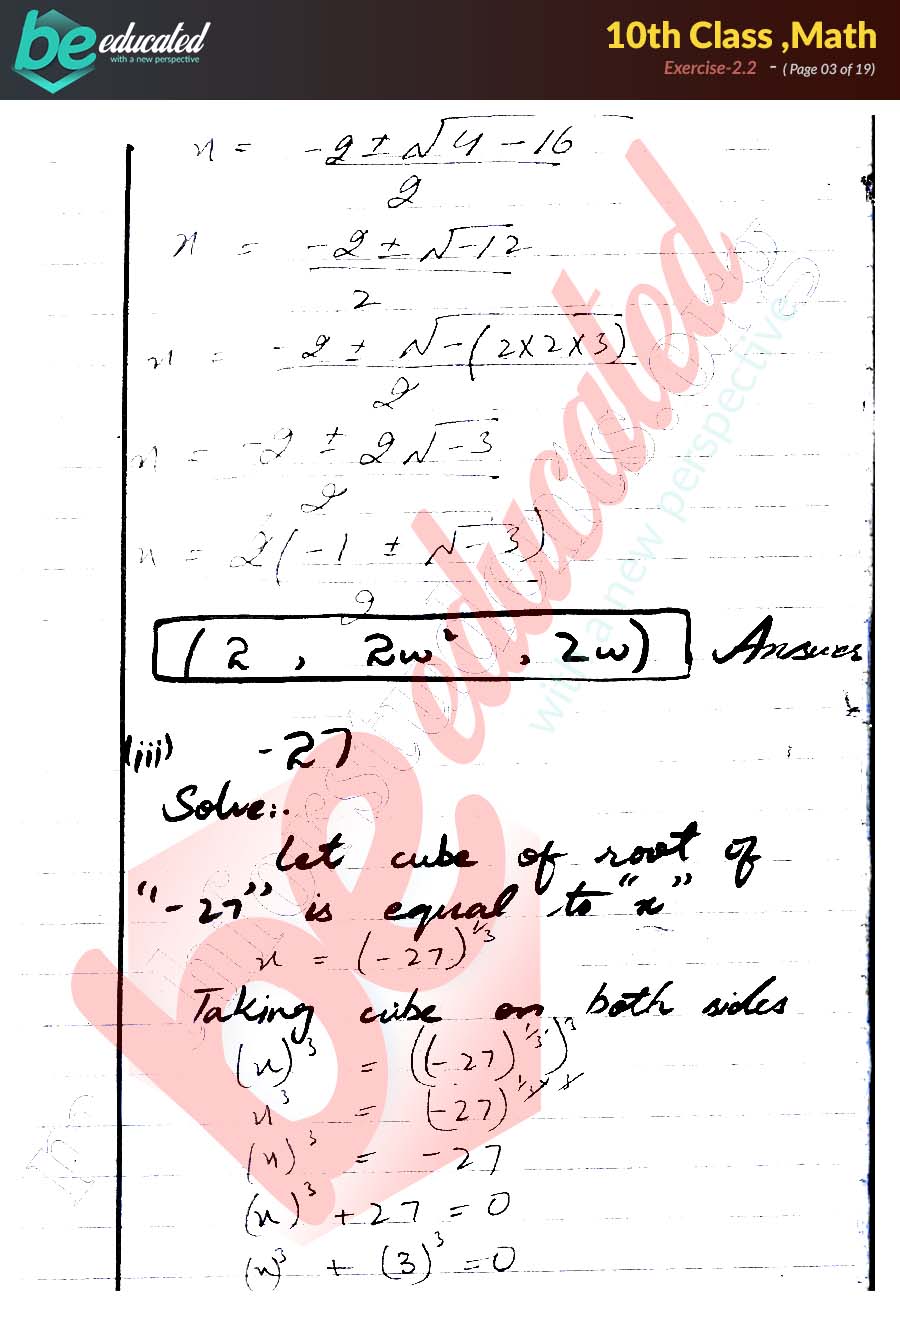 be educated
with a new perspective
10th Class ,Math
Exercise-2.2 - ( Page 03 of 19)
x = -2 ± √4 - 16
2
x = -2 ± √-12
2
x = -2 ± √-(2×2×3)
2
x = -2 ± 2√-3
2
x = 2(-1 ± √-3)
2
(2 , 2w² , 2w) Answer
(iii) -27
Solve:.
Let cube of root of
"-27" is equal to "x"
x = (-27)^1/3
Taking cube on both sides
(x)³ = ((-27)^1/3)³
x³ = (-27)^1/3 × 3
(x)³ = -27
(x)³ + 27 = 0
(x)³ + (3)³ = 0
be educated
with a new perspective